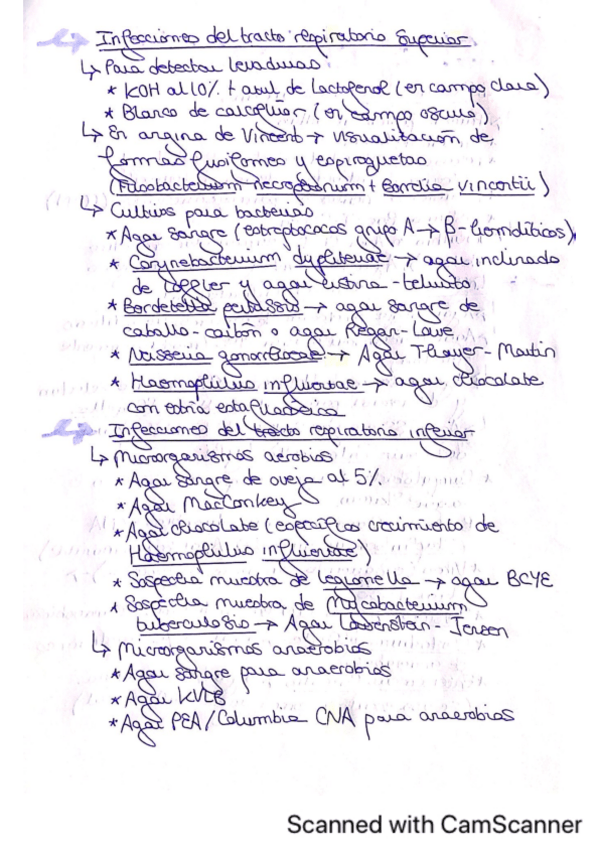 Infecciones del tracto respiratorio superior
↳ Para detectar levaduras
* KOH al 10% + azul de lactofenol (en campo claro)
* Blanco de calcoflúor (en campo oscuro)
↳ En angina de Vincent → visualización de
formas fusiformes y espiroquetas
(Fusobacterium necrophorum + Borrelia vincentii)
↳ Cultivos para bacterias
* Agar sangre (estreptococos grupo A → β-hemolíticos)
* Corynebacterium dyphteriae → agar inclinado
de Löeffler y agar cistina-telurito
* Bordetella pertussis → agar sangre de
caballo-carbón o agar Regan-Lowe
* Neisseria gonorrhoeae → Agar Thayer-Martin
* Haemophilus influenzae → agar chocolate
con estría estafilocócica
Infecciones del tracto respiratorio inferior
↳ Microorganismos aerobios
* Agar sangre de oveja al 5%
* Agar MacConkey
* Agar chocolate (específico crecimiento de
Haemophilus influenzae)
* Sospecha muestra de legionella → agar BCYE
* Sospecha muestra de Mycobacterium
tuberculosis → Agar Löwenstein-Jensen
↳ Microorganismos anaerobios
* Agar sangre para anaerobios
* Agar KVLB
* Agar PEA/Columbia CNA para anaerobios
Scanned with CamScanner